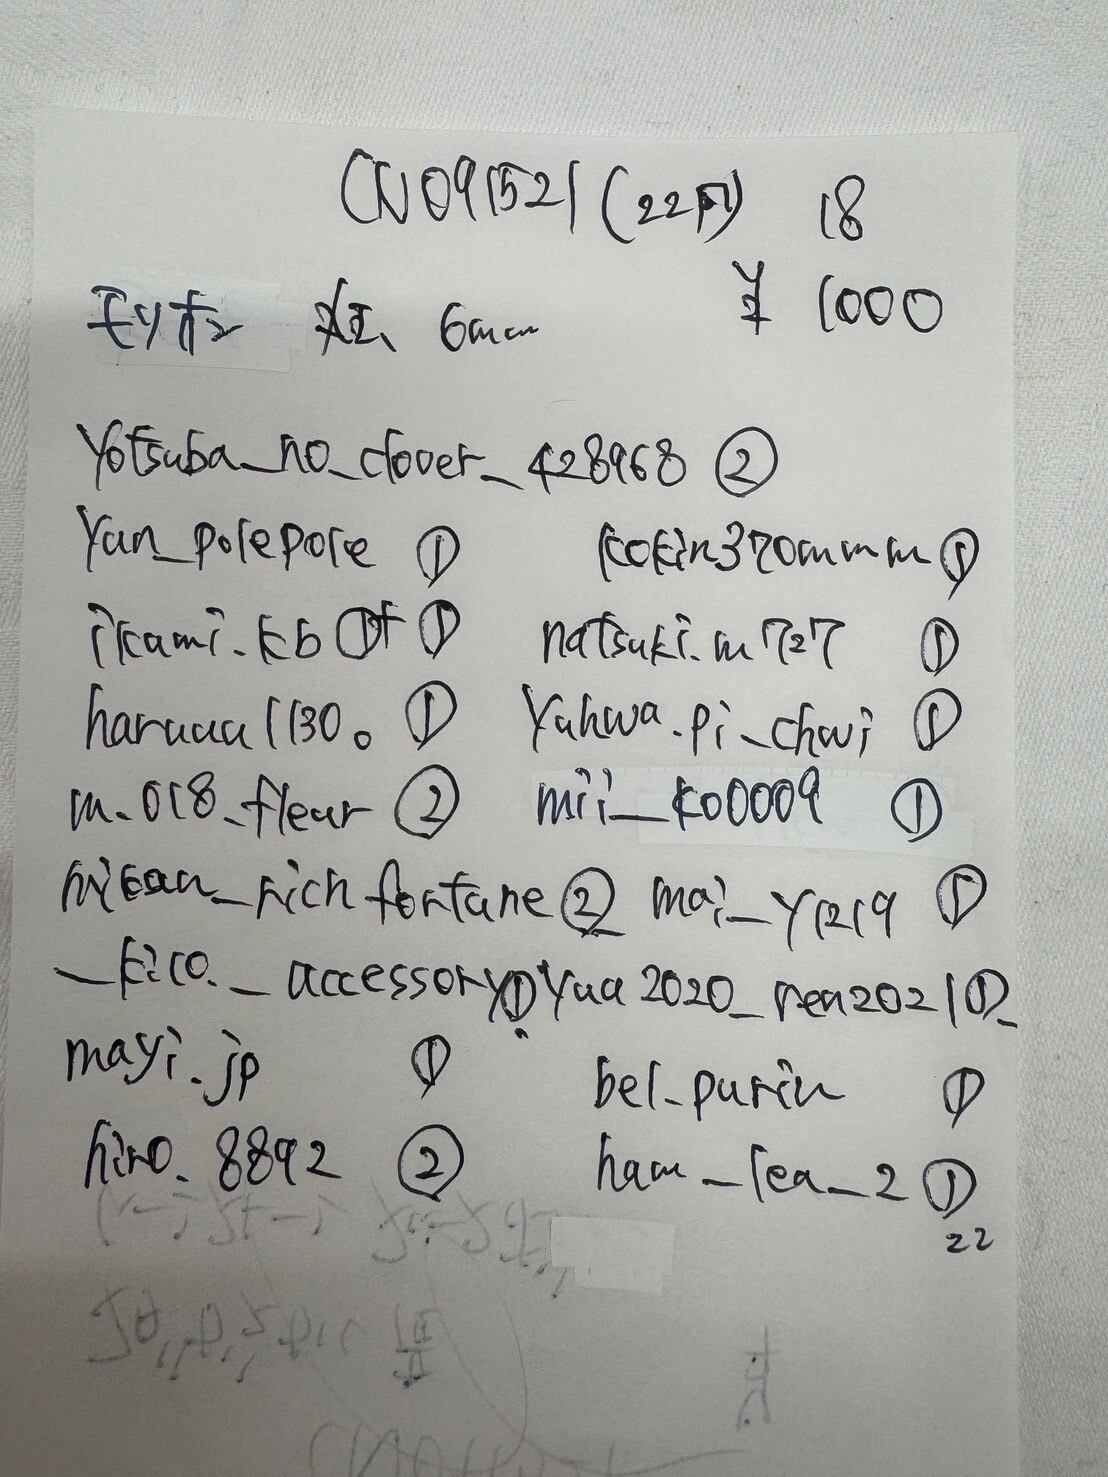 CN091521(22円) 18
モリオン 6mm ¥ 1000
yotsuba_no_clover_428968 ②
yan_polepole ① kokin370mmm ①
ikami.kb ①+① natsuki.m727 ①
haruuu1130。 ① yuhwa.pi_chwi ①
m.018_fleur ② mii_ko0009 ①
mikan_rich fortune ② mai_y1219 ①
_kico._accessory ① yua2020_rea2021 ①
mayi.jp ① bel_purin ①
hiro_8892 ② ham_lea_2 ①
22